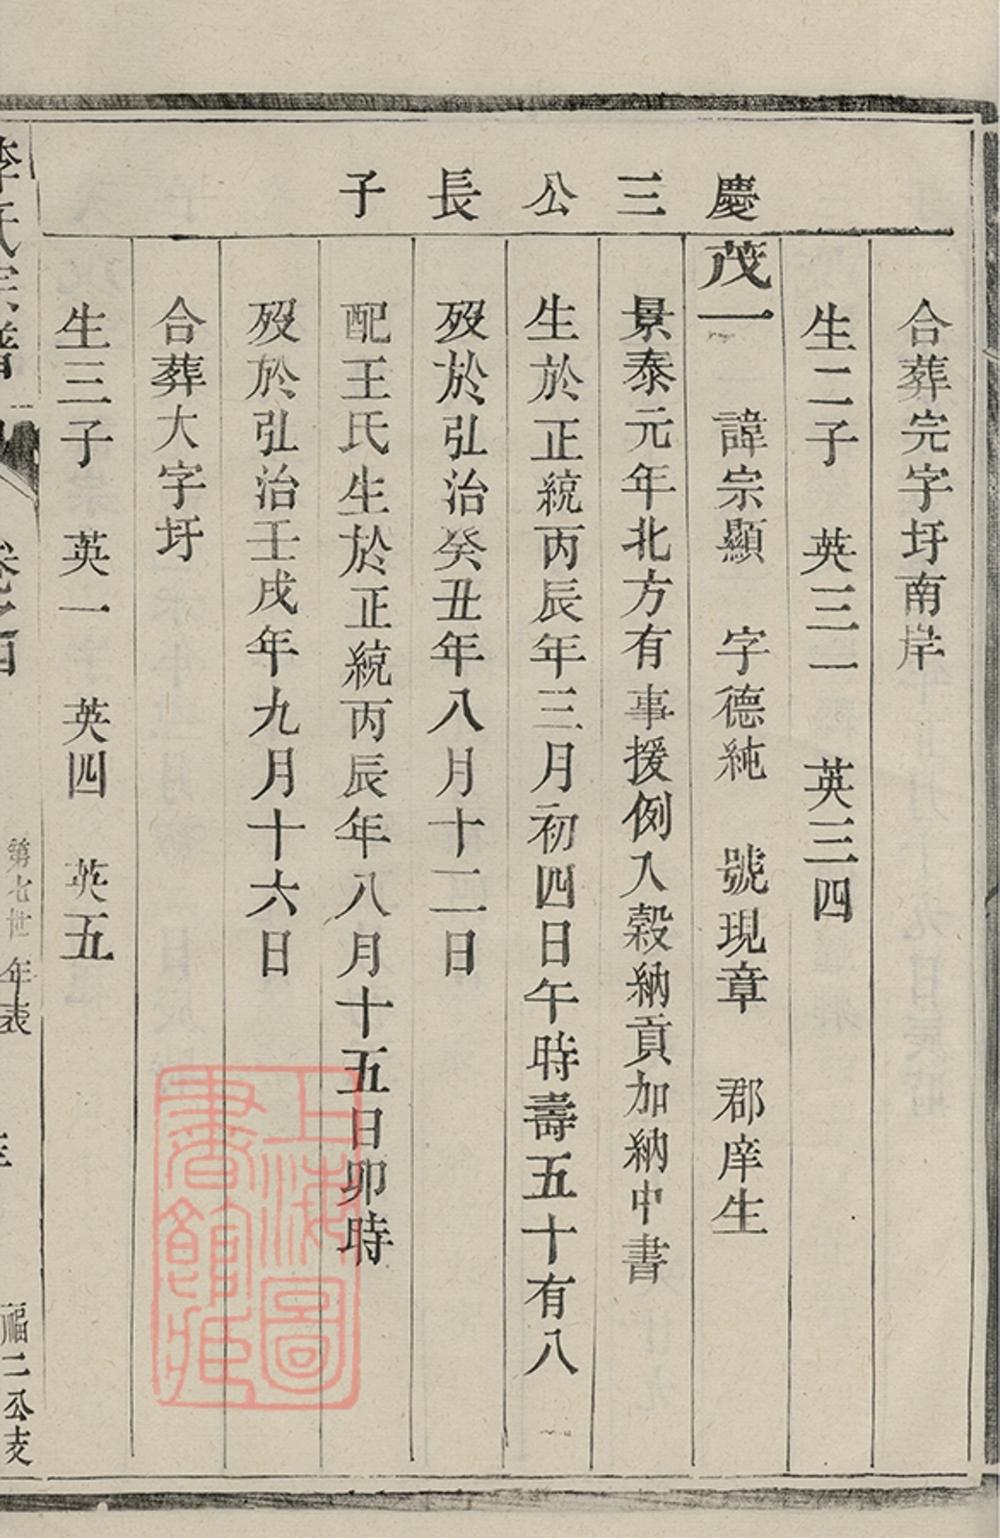 慶三公長子
合葬完字圩南岸
生二子　英三一　英三四
茂一　諱宗顯　字德純　號現章　郡庠生
景泰元年北方有事援例入穀納貢加納中書
生於正統丙辰年三月初四日午時壽五十有八
歿於弘治癸丑年八月十二日
配王氏生於正統丙辰年八月十五日卯時
歿於弘治壬戌年九月十六日
合葬大字圩
生三子　英一　英四　英五
李氏宗譜　卷之四　第七世年表　福二公支
上海圖書館藏